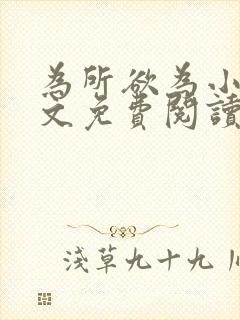 為所欲為小
文免費閱讀
淺草九十九